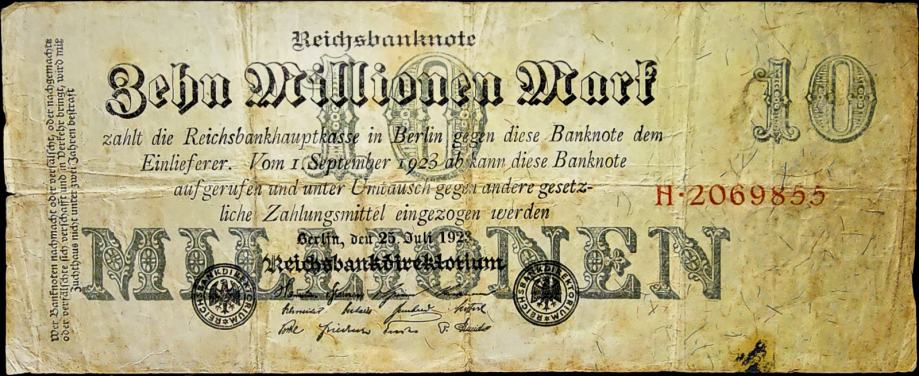 Reichsbanknote
Zehn Millionen Mark
10
10
zahlt die Reichsbankhauptkasse in Berlin gegen diese Banknote dem
Einlieferer. Vom 1. September 1923 ab kann diese Banknote
aufgerufen und unter Umtausch gegen andere gesetz-
liche Zahlungsmittel eingezogen werden
H·2069855
MILLIONEN
Berlin, den 25. Juli 1923
Reichsbankdirektorium
REICHSBANKDIREKTORIUM
REICHSBANKDIREKTORIUM
Wer Banknoten nachmacht oder verfälscht, oder nachgemachte
oder verfälschte sich verschafft und in Verkehr bringt, wird mit
Zuchthaus nicht unter zwei Jahren bestraft